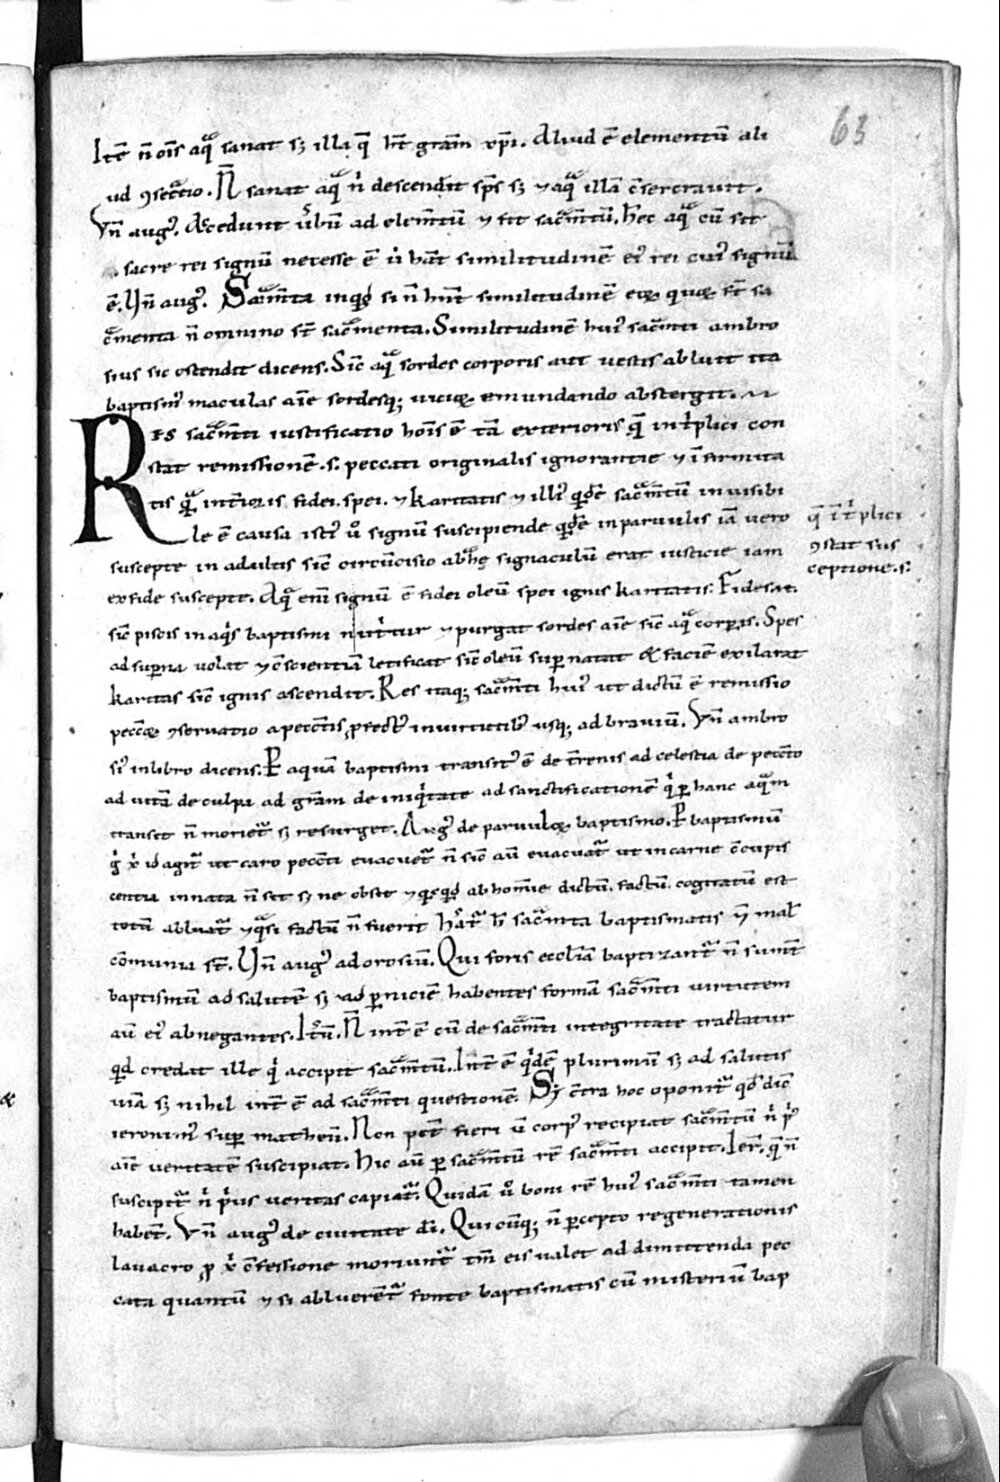 63
Itē n̄ oīs aq̄ sanat sȝ illa q̄ ht̄ grām xp̄i. Aliud ē elementū ali
ud ꝯsecᵃtio. N̄ sanat aqᵃ nⁱ descendit sps̄ sȝ ⁊ aqᵃ illā c̄secrauit.
Vn̄ aug᾽. Accedunt ūbū ad elem̄tū ⁊ fit sacᵃm̄tū. hec aqᵃ cū sit
sacre rei signū necesse ē ut hāt similitudinē ei᾽ rei cui᾽ signū
ē. Vn̄ aug᾽. Sacᵃm̄ta inqͥd si n̄ hn̄t similitudinē eoꝝ quoꝝ st̄ sa
cᵃmenta n̄ omnino st̄ sacᵃmenta. Similitudinē hui᾽ sacᵃm̄ti ambro
sius sic ostendit dicens. Sic̄ aqᵃ sordes corporis aut uestis abluit ita
baptism᾽ maculas aīe sordesqȝ uicioꝝ emundando abstergit.
Res sacᵃm̄ti iustificatio hoīs ē tā exterioris qᵃ̄ int̄plici con
stat remissionē .s. peccati originalis ignorantie ⁊ īfirmita
tis qᵃ̄ int̄ioris fidei. spei. ⁊ karitatis ⁊ illi᾽ qͥdē sacᵃm̄tū inuisibi
le ē causa isti᾽ uͦ signū suscipiende qͥdē in paruulis iā uero
suscepte in adultis sic̄ circūcisio abrhe signaculū erat iusticie iam
q̄ ī tⁱplici
ꝯstat sus
ceptione .s.
ex fide suscepte. Aqᵃ enī signū ē fidei oleū spei ignis karitatis. Fides at.
sic̄ piscis in aqͥs baptismi nut̄tur ⁊ purgat sordes aīe sic̄ aqᵃ corꝑis. Spes
ad suꝑna uolat ⁊ c̄scientiā letificat sic̄ oleū suꝑnatat & faciē exilarat
karitas sic̄ ignis ascendit. Res itaqȝ sacᵃm̄ti hui᾽ ut dictū ē remissio
pecc̄oꝝ ꝯseruatio a pecc̄tis ꝓfect᾽ in uirtutib᾽ usqȝ ad brauiū. Vn̄ ambro
si᾽ in libro dicens. P aquā baptismi transit᾽ ē de tr̄enis ad celestia de pecc̄to
ad uitā de culpa ad grām de iniqͥtate ad sanctificationē qͥ ꝑ hanc aqᵃm
transit n̄ moriet᾽ sȝ resurget. Aug᾽ de paruuloꝝ baptismo. P baptismū
gͥ xͥ id agit᾽ ut caro pecc̄ti euacuet᾽ n̄ sic̄ aū euacuat᾽ ut in carne c̄cupis
centia innata n̄ sit sȝ ne obsit ⁊ qͥcqͥd ab homīe dictū. factū. cogitatū est
totū abluat᾽ ⁊ qᵃsi factū n̄ fuerit hat᾽ h᾽ sacᵃm̄ta baptismatis ⁊ mal᾽
cōmunia st̄. Vn̄ aug᾽ ad orosiū. Qui foris eccl̄iā baptizant᾽ n̄ sumt
baptismū ad salutē sȝ ad ꝑniciē habentes formā sacᵃm̄ti uirtutem
aū ei᾽ abnegantes. It̄ū. N̄ int̄ ē cū de sacᵃm̄ti integritate tractatur
qͥd credit ille qͥ accipit sacᵃm̄tū. Int̄ ē qͥdē plurimū sȝ ad salutis
uiā sȝ nihil int̄ ē ad sacᵃm̄ti questionē. Sȝ c̄tra hoc oponit᾽ qͦd dic̄
ieronim᾽ suꝑ matheū. Non pot̄ fieri ū corp᾽ recipiat sacᵃm̄tū nⁱ pⁱ᾽
aīe ueritatē suscipiat. hic aū ꝑ sacᵃm̄tū rē sacᵃm̄ti accipit. Ier̄. q̄ n̄
suscipit᾽ nⁱ pⁱus ueritas capiat᾽. Quidā uͦ boni rē hui᾽ sacᵃm̄ti tamen
habēt. Vn̄ aug᾽ de ciuitate dī. Qui cūqȝ n̄ ꝑcepto regenerationis
lauacro ꝓ xͥ c̄fessione moriunt᾽ tm̄ eis ualet ad dimittenda pec
cata quantū ⁊ si abluerēt᾽ fonte baptismatis cū misteriū bap